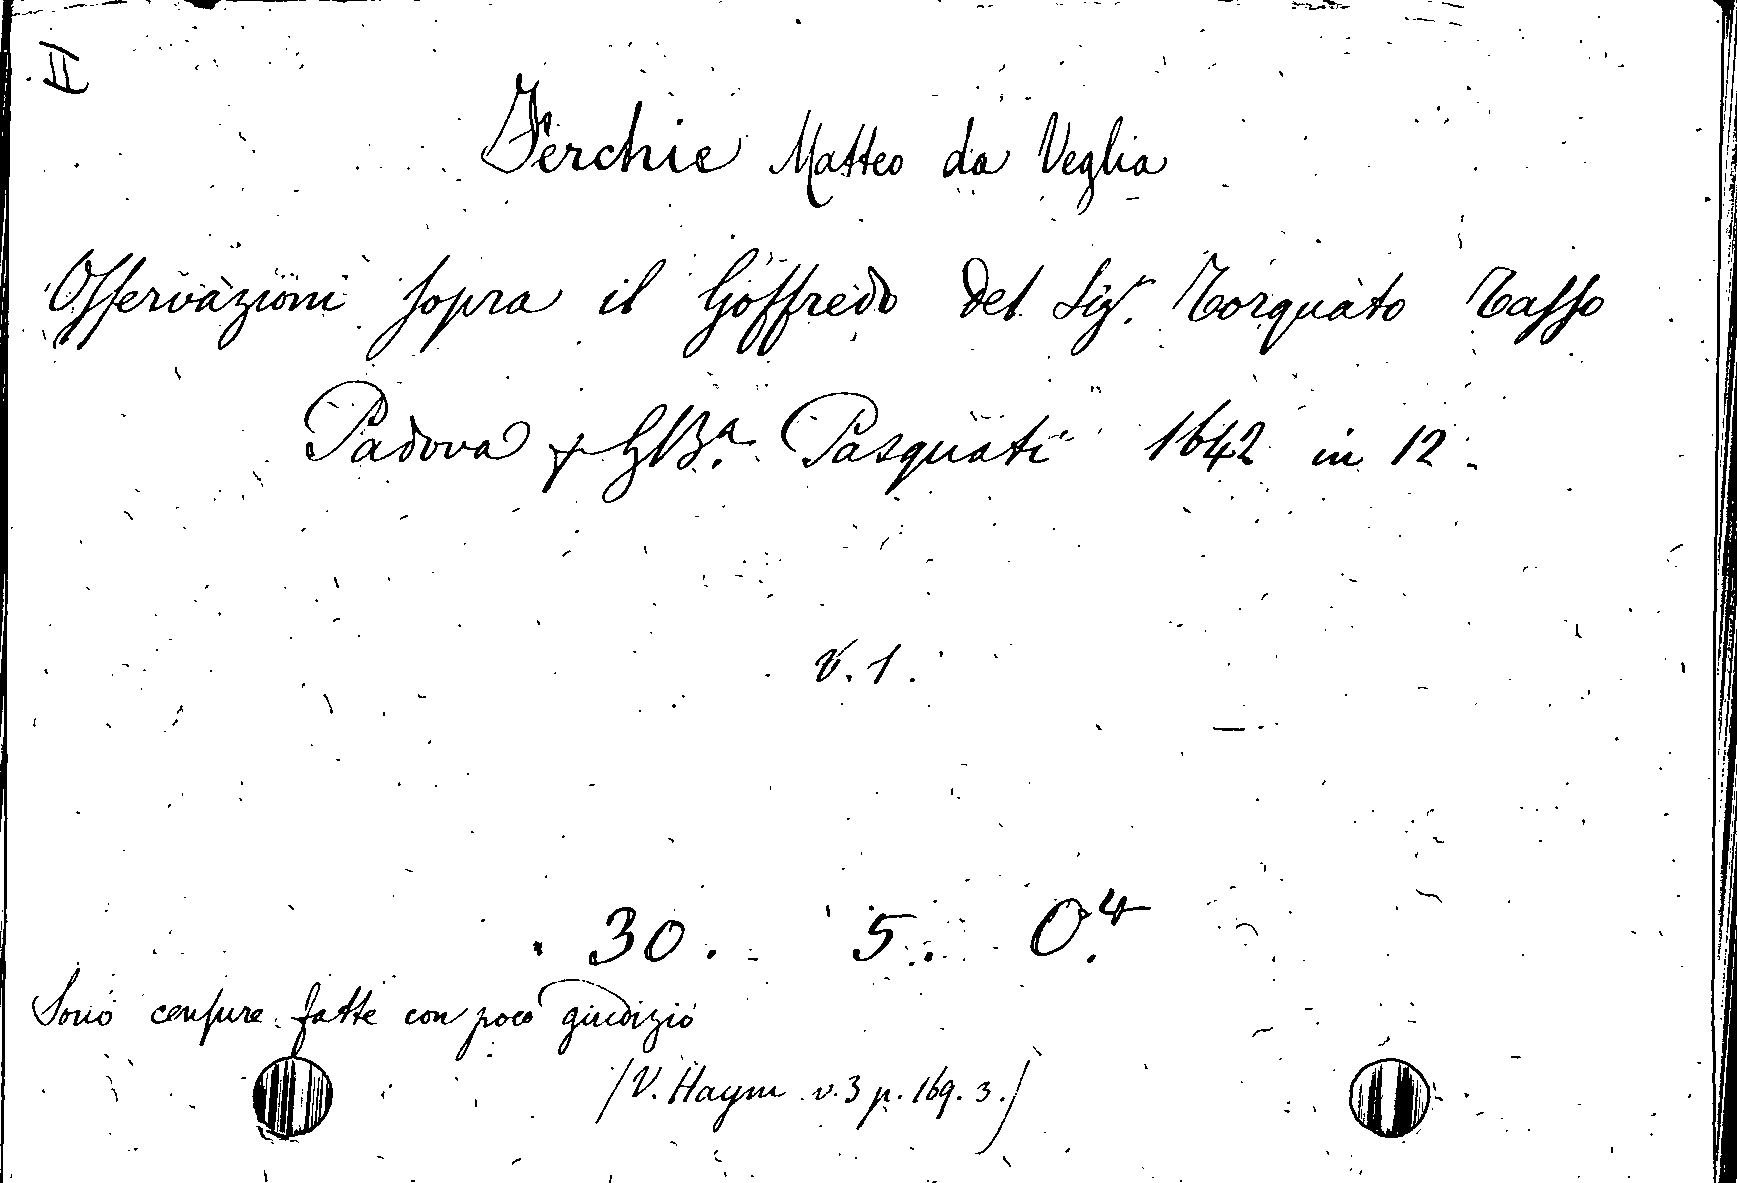 II
Ferchie Matteo da Veglia
Osservazioni sopra il Goffredo del Sigr. Torquato Tasso
Padova p GBa. Pasquati 1642 in 12.
v. 1.
30. 5. O.4
Sono censure fatte con poco giudizio
(V. Haym v. 3 p. 169. 3.)